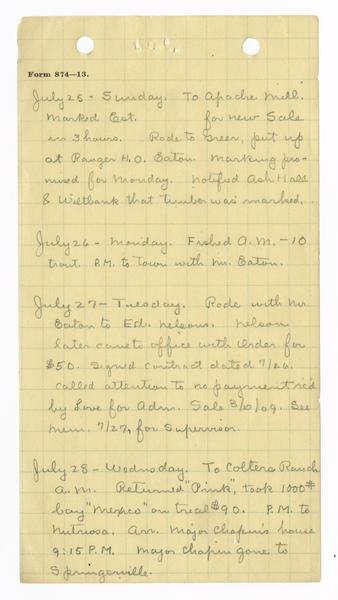 Form 874—13.
July 25 - Sunday. To Apache Mill.
Marked Est. for new Sale
in 3 hours. Rode to Greer, put up
at Ranger H.O. Eaton. Marking pro-
mised for Monday. Notified Ash Hale
& Wiltbank that timber was marked.
July 26 - Monday. Fished A.M. - 10
trout. P.M. to town with Mr. Eaton.
July 27 - Tuesday. Rode with Mr.
Eaton to Ed. Nelsons. Nelson
later came to office with order for
$50. Signed contract dated 7/26.
called attention to no payment rec'd
by Love for Adm. Sale 3/10/09. See
mem. 7/27, for Supervisor.
July 28 - Wednesday. To Colters Ranch
A.M. Returned "Pink", took 1000#
bay "Mexico" on trial $90. P.M. to
Nutriosa. Arr. Major Chapin's house
9:15 P.M. Major Chapin gone to
Springerville.